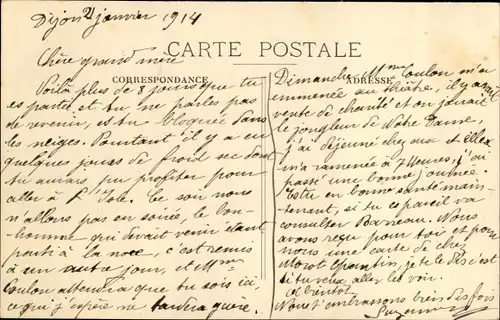 Dijon 21 janvier 1914
Chère grand'mère
CARTE POSTALE
CORRESPONDANCE
Voilà plus de 8 jours que tu
es partet et tu ne parles pas
de revenir, es tu bloquée dans
les neiges. Pourtant il y a eu
quelques jours de froid sec dont
tu aurais pu profiter pour
aller à Dole. Ce soir nous
n'allons pas en soirée, le bon-
homme qui devait venir étant
parti à la noce, c'est remis
à un autre jour, et Mme
Coulon attendra que tu sois ici,
ce qui j'espère ne tardera guère.
ADRESSE
Dimanche Mme Coulon m'a
emmenée au théâtre, il y avait
vente de charité et on jouait
le jongleur de Notre Dame,
j'ai déjeuné chez eux et elle
m'a ramenée à 7 heures, j'ai
passé une bonne journée.
Es tu en bonne santé main-
tenant, si tu es pareil va
consulter Nous
avons reçu pour toi et pour
nous une carte de chez
je te le dis c'est
si tu veux aller les voir.
A bientôt
Nous t'embrassons bien des fois
Suzanne